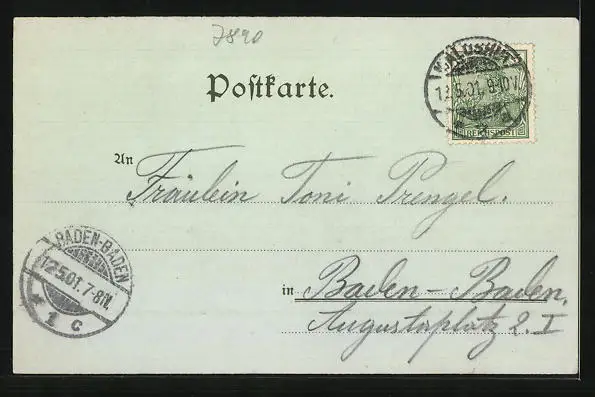 7890
Postkarte.
WALDSHUT
12.5.01. 9-10V.
REICHSPOST
An Fräulein Toni Prengel.
BADEN-BADEN
12.5.01. 7-8N.
* 1 c
in Baden-Baden,
Augustaplatz 2. I